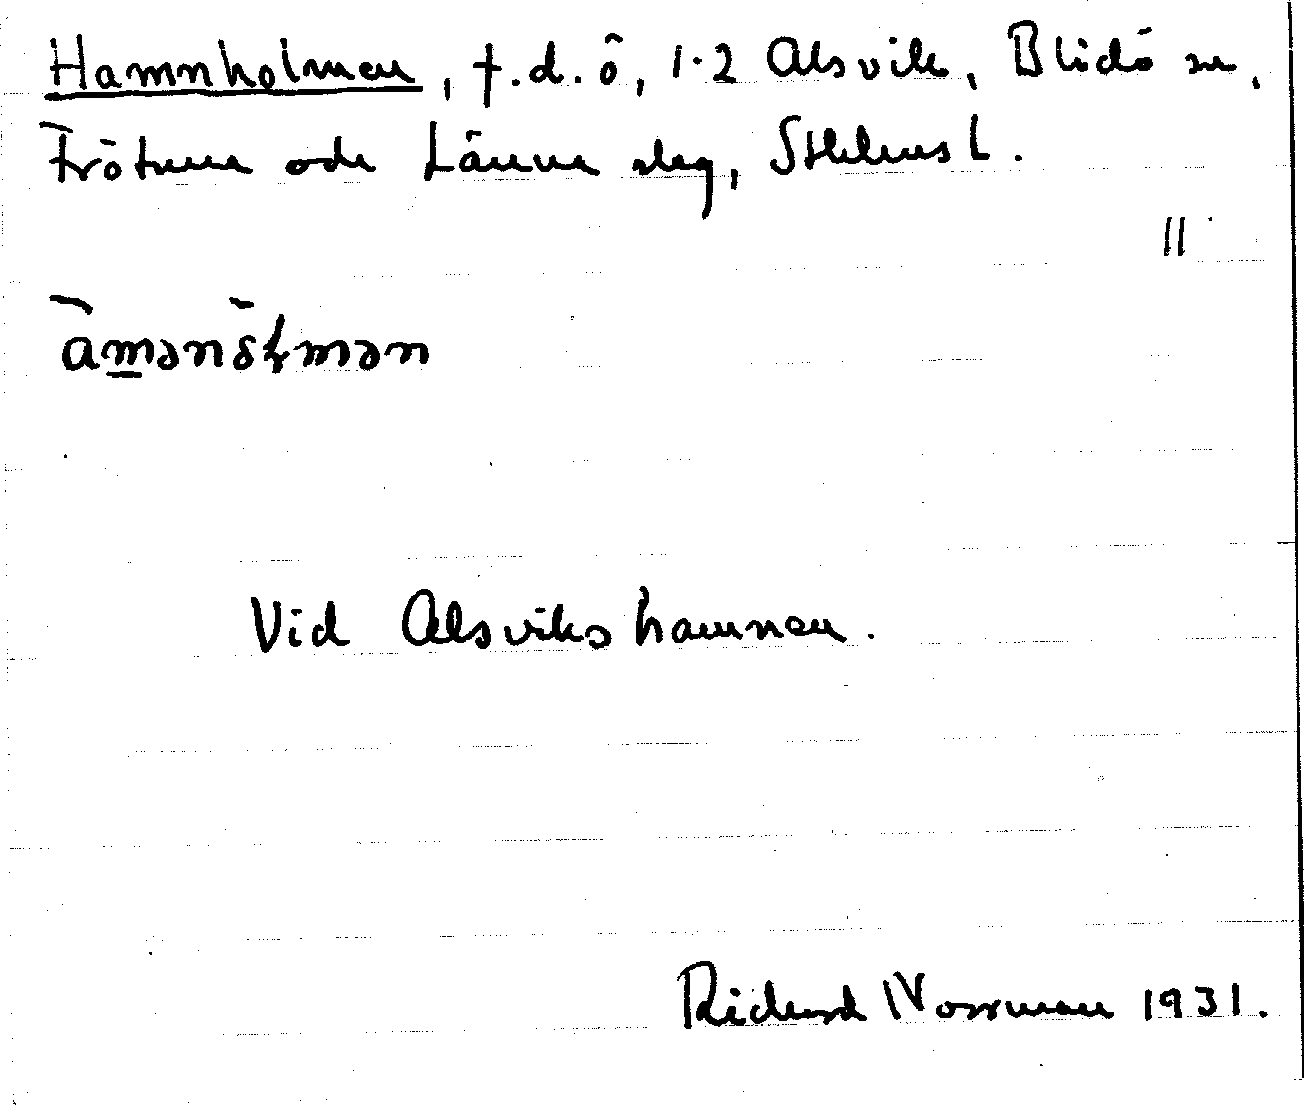 Hamnholmen, f.d. ö, 1.2 Alsvik, Blidö sn,
Frötuna och Länna slg, Sthlms L.
11
àmənòɫmən
Vid Alsviks hamnen.
Richard Norrman 1931.